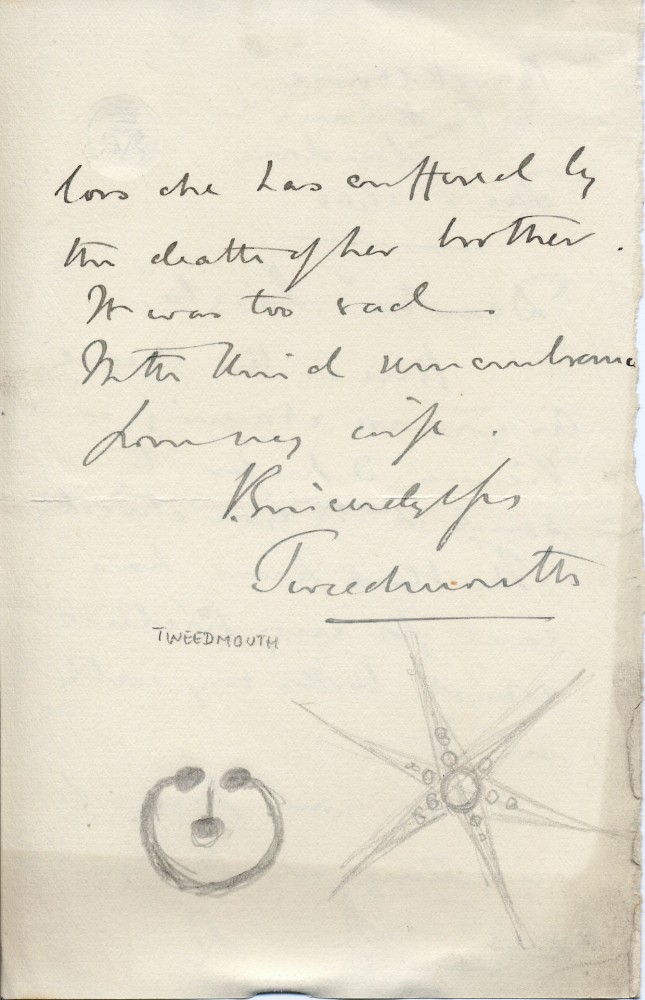 loss she has suffered by
the death of her brother.
It was too sad
With kind remembrance
from my wife.
V. Sincerely Yrs
Tweedmouth
TWEEDMOUTH